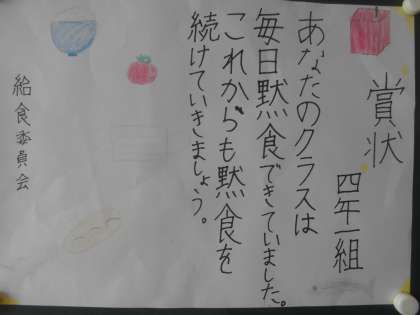 賞状
四年一組
あなたのクラスは
毎日黙食できていました。
これからも黙食を
続けていきましょう。
給食委員会